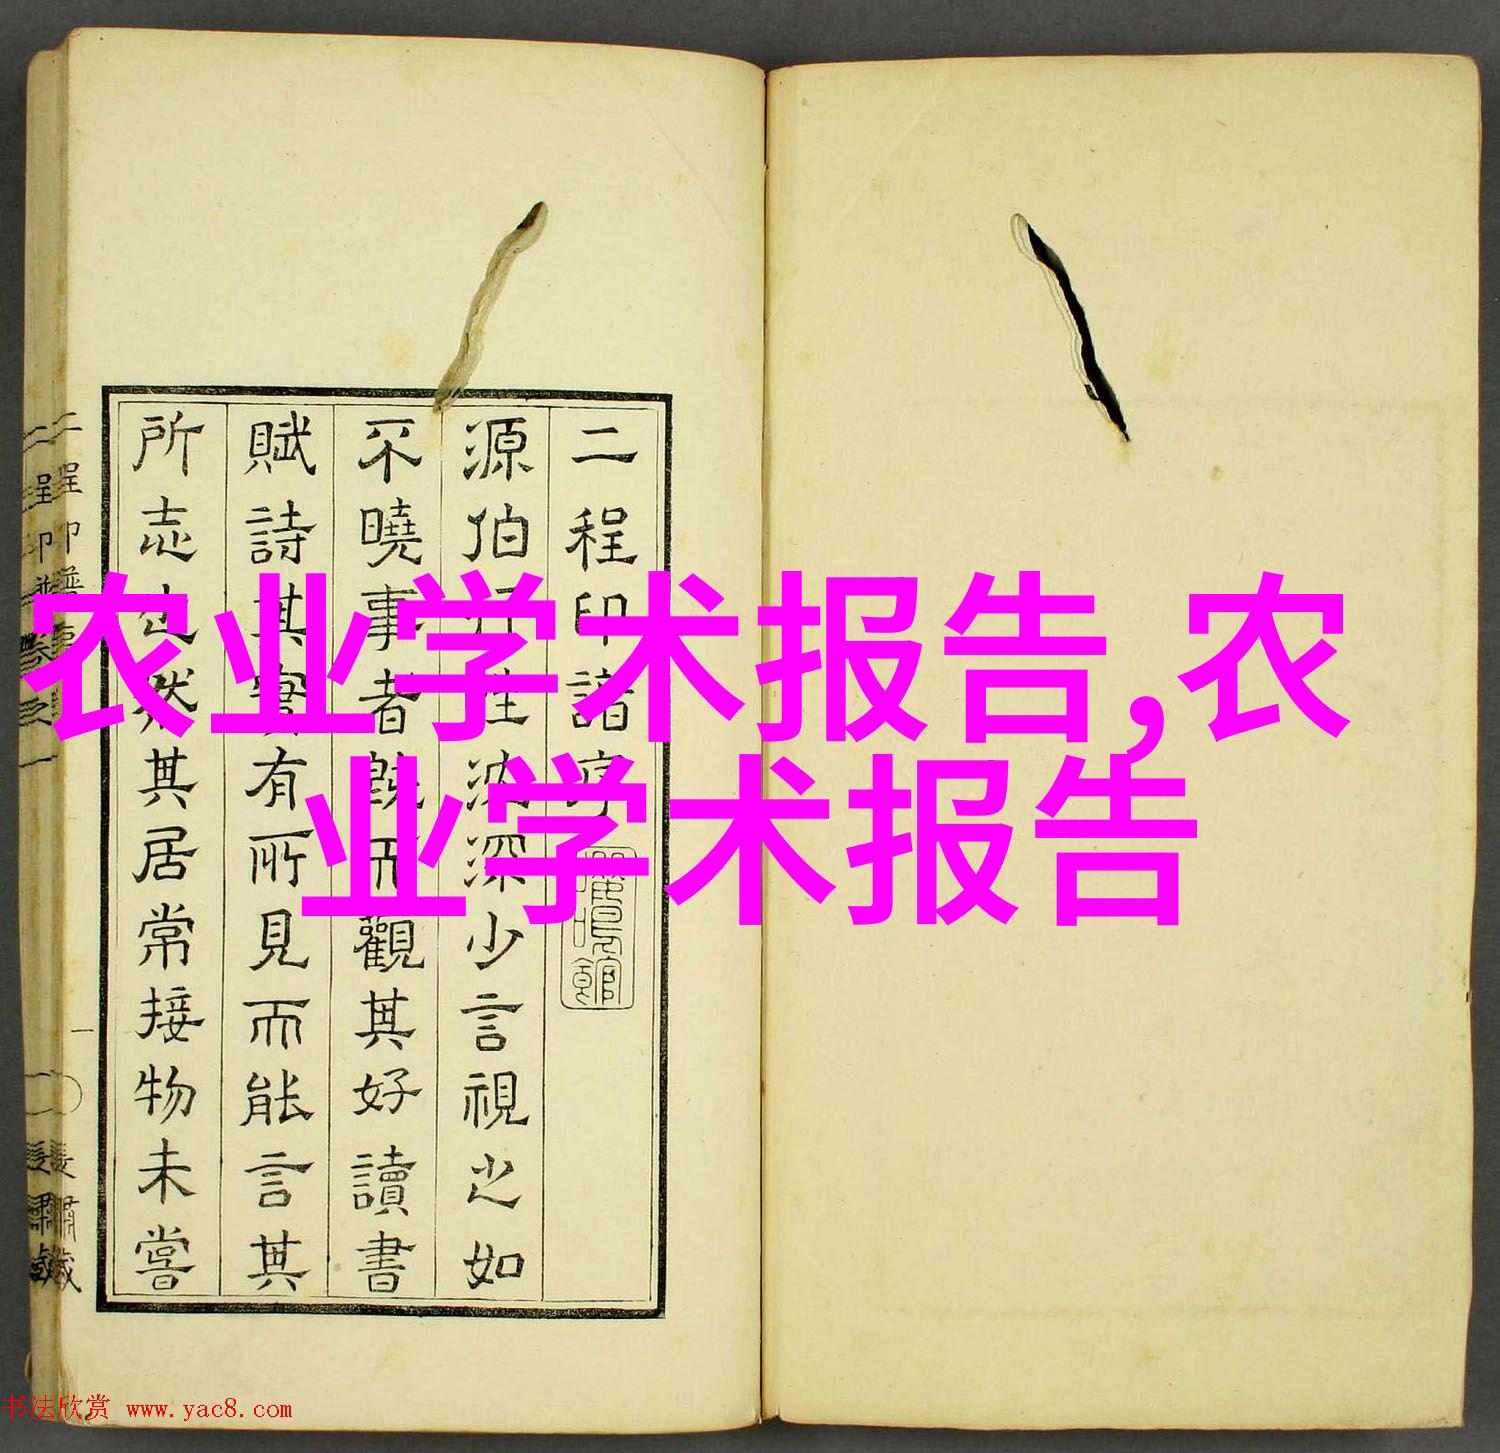 二程印譜序
源伯行性沈深少言視之如
不曉事者既而觀其好讀書
賦詩其實有所見而能言其
所志也然其居常接物未嘗
农业学术报告,农
业学术报告
书法欣赏 www.yac8.com